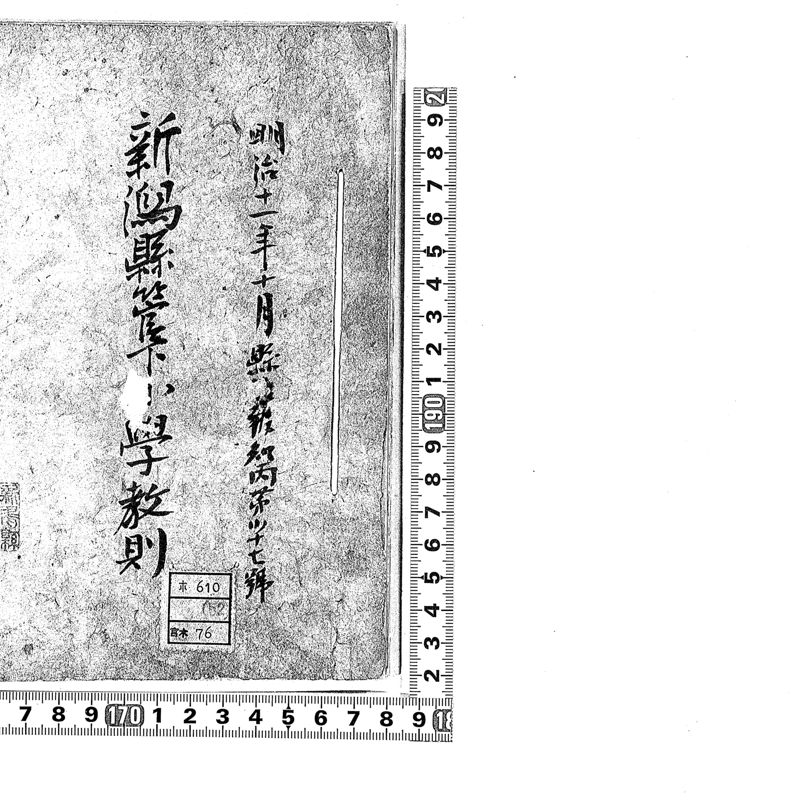 明治十一年十月縣治報知丙第十七號
新潟縣管下小學教則
610
76
9 8 7 6 5 4 3 2 1 190 9 8 7 6 5 4 3 2
7 8 9 170 1 2 3 4 5 6 7 8 9